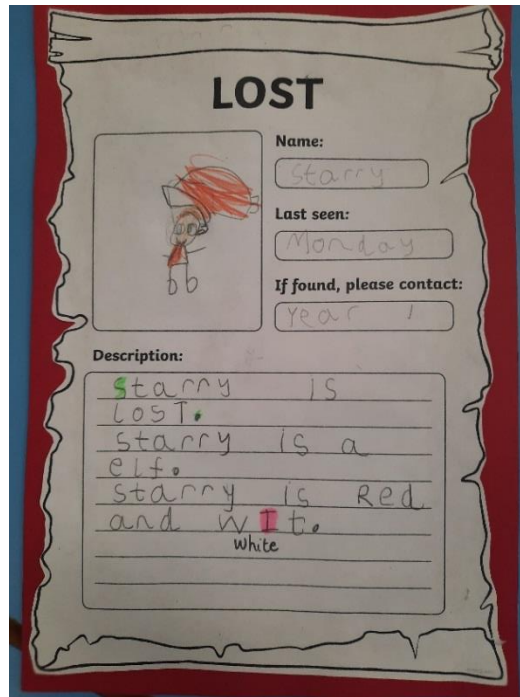 LOST
Name:
Starry
Last seen:
Monday
If found, please contact:
Year 1
Description:
starry is
LOST.
starry is a
elf.
starry is Red
and wIt.
white